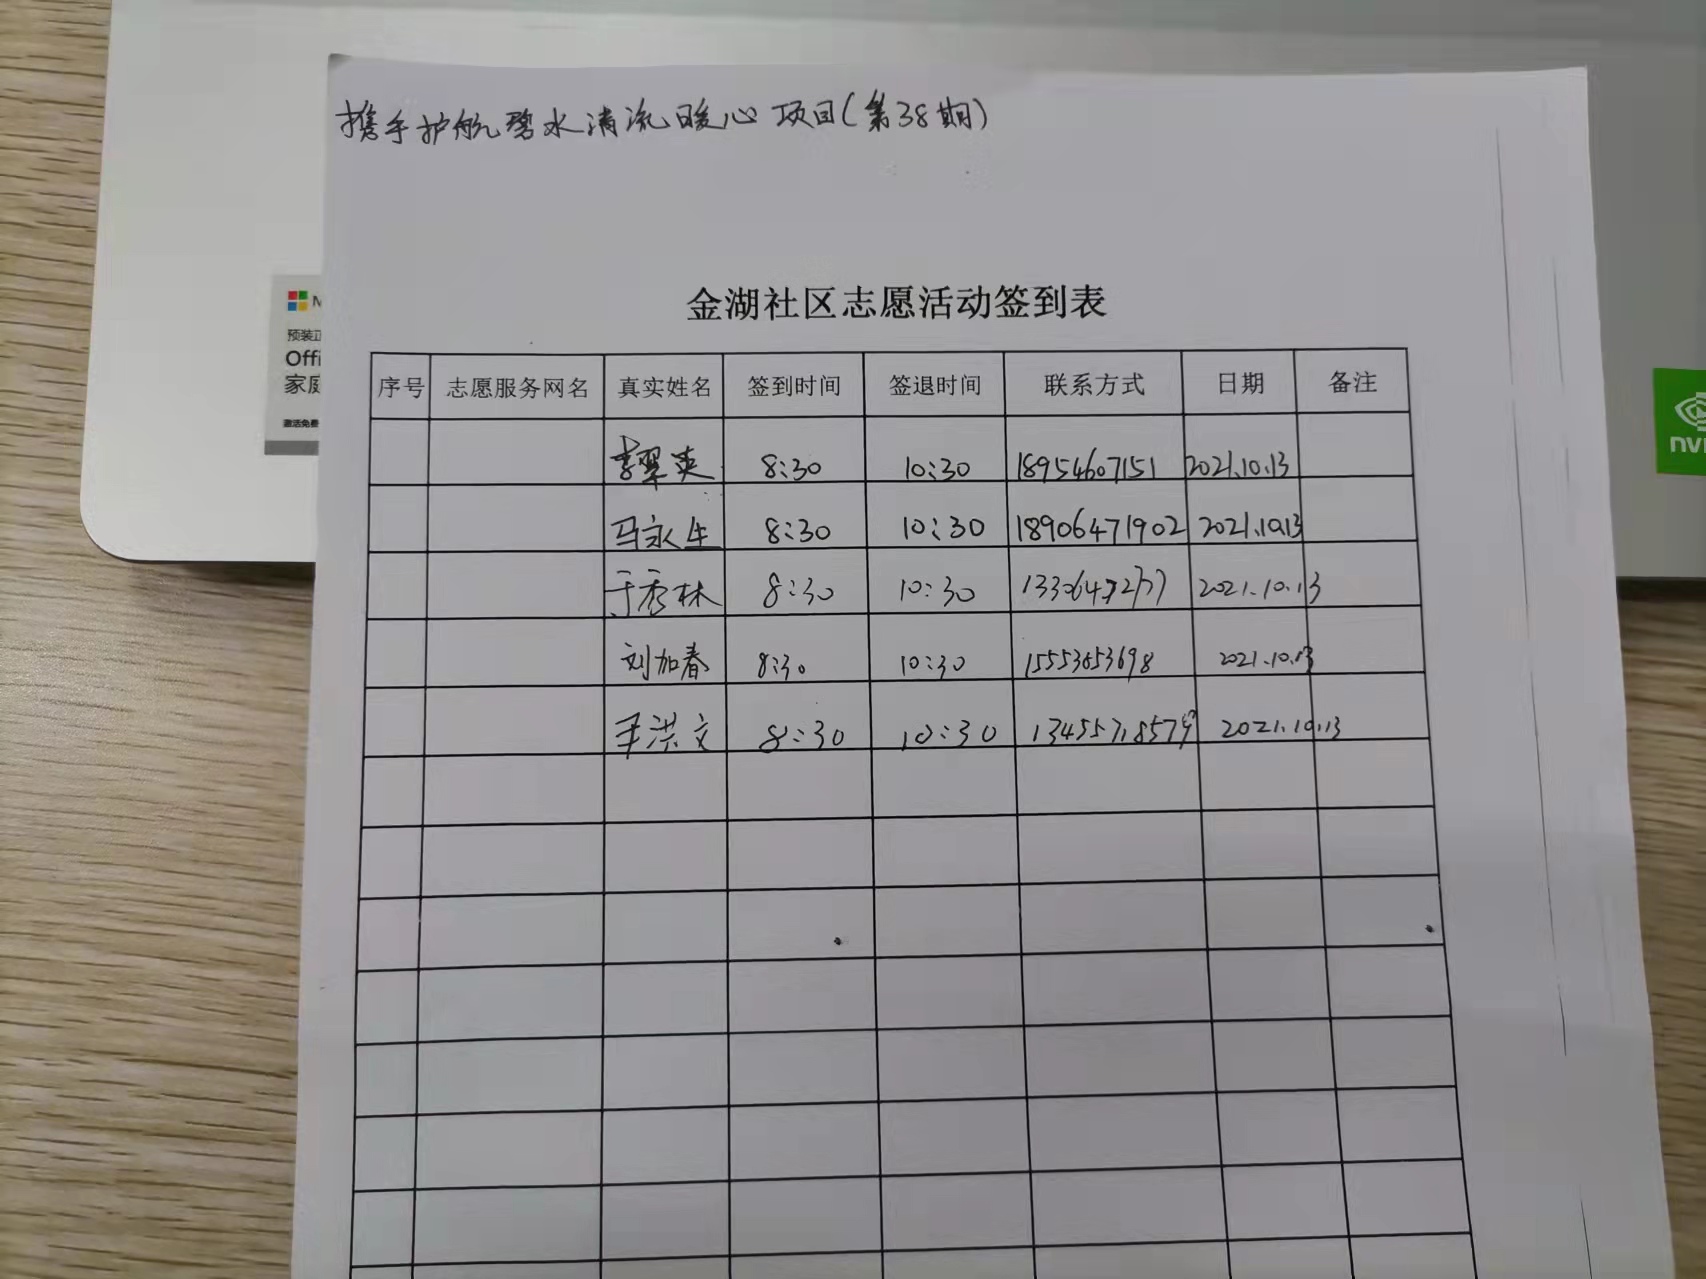 携手护航碧水清流暖心项目(第38期)
金湖社区志愿活动签到表
预装正
Offi
家庭
激活免费
序号 志愿服务网名 真实姓名 签到时间 签退时间 联系方式 日期 备注
李翠爽 8:30 10:30 18954607151 2021.10.13
马永生 8:30 10:30 18906471902 2021.10.13
于秀林 8:30 10:30 2021.10.13
刘加春 8:30 10:30 15553653698 2021.10.13
王洪文 8:30 10:30 2021.10.13